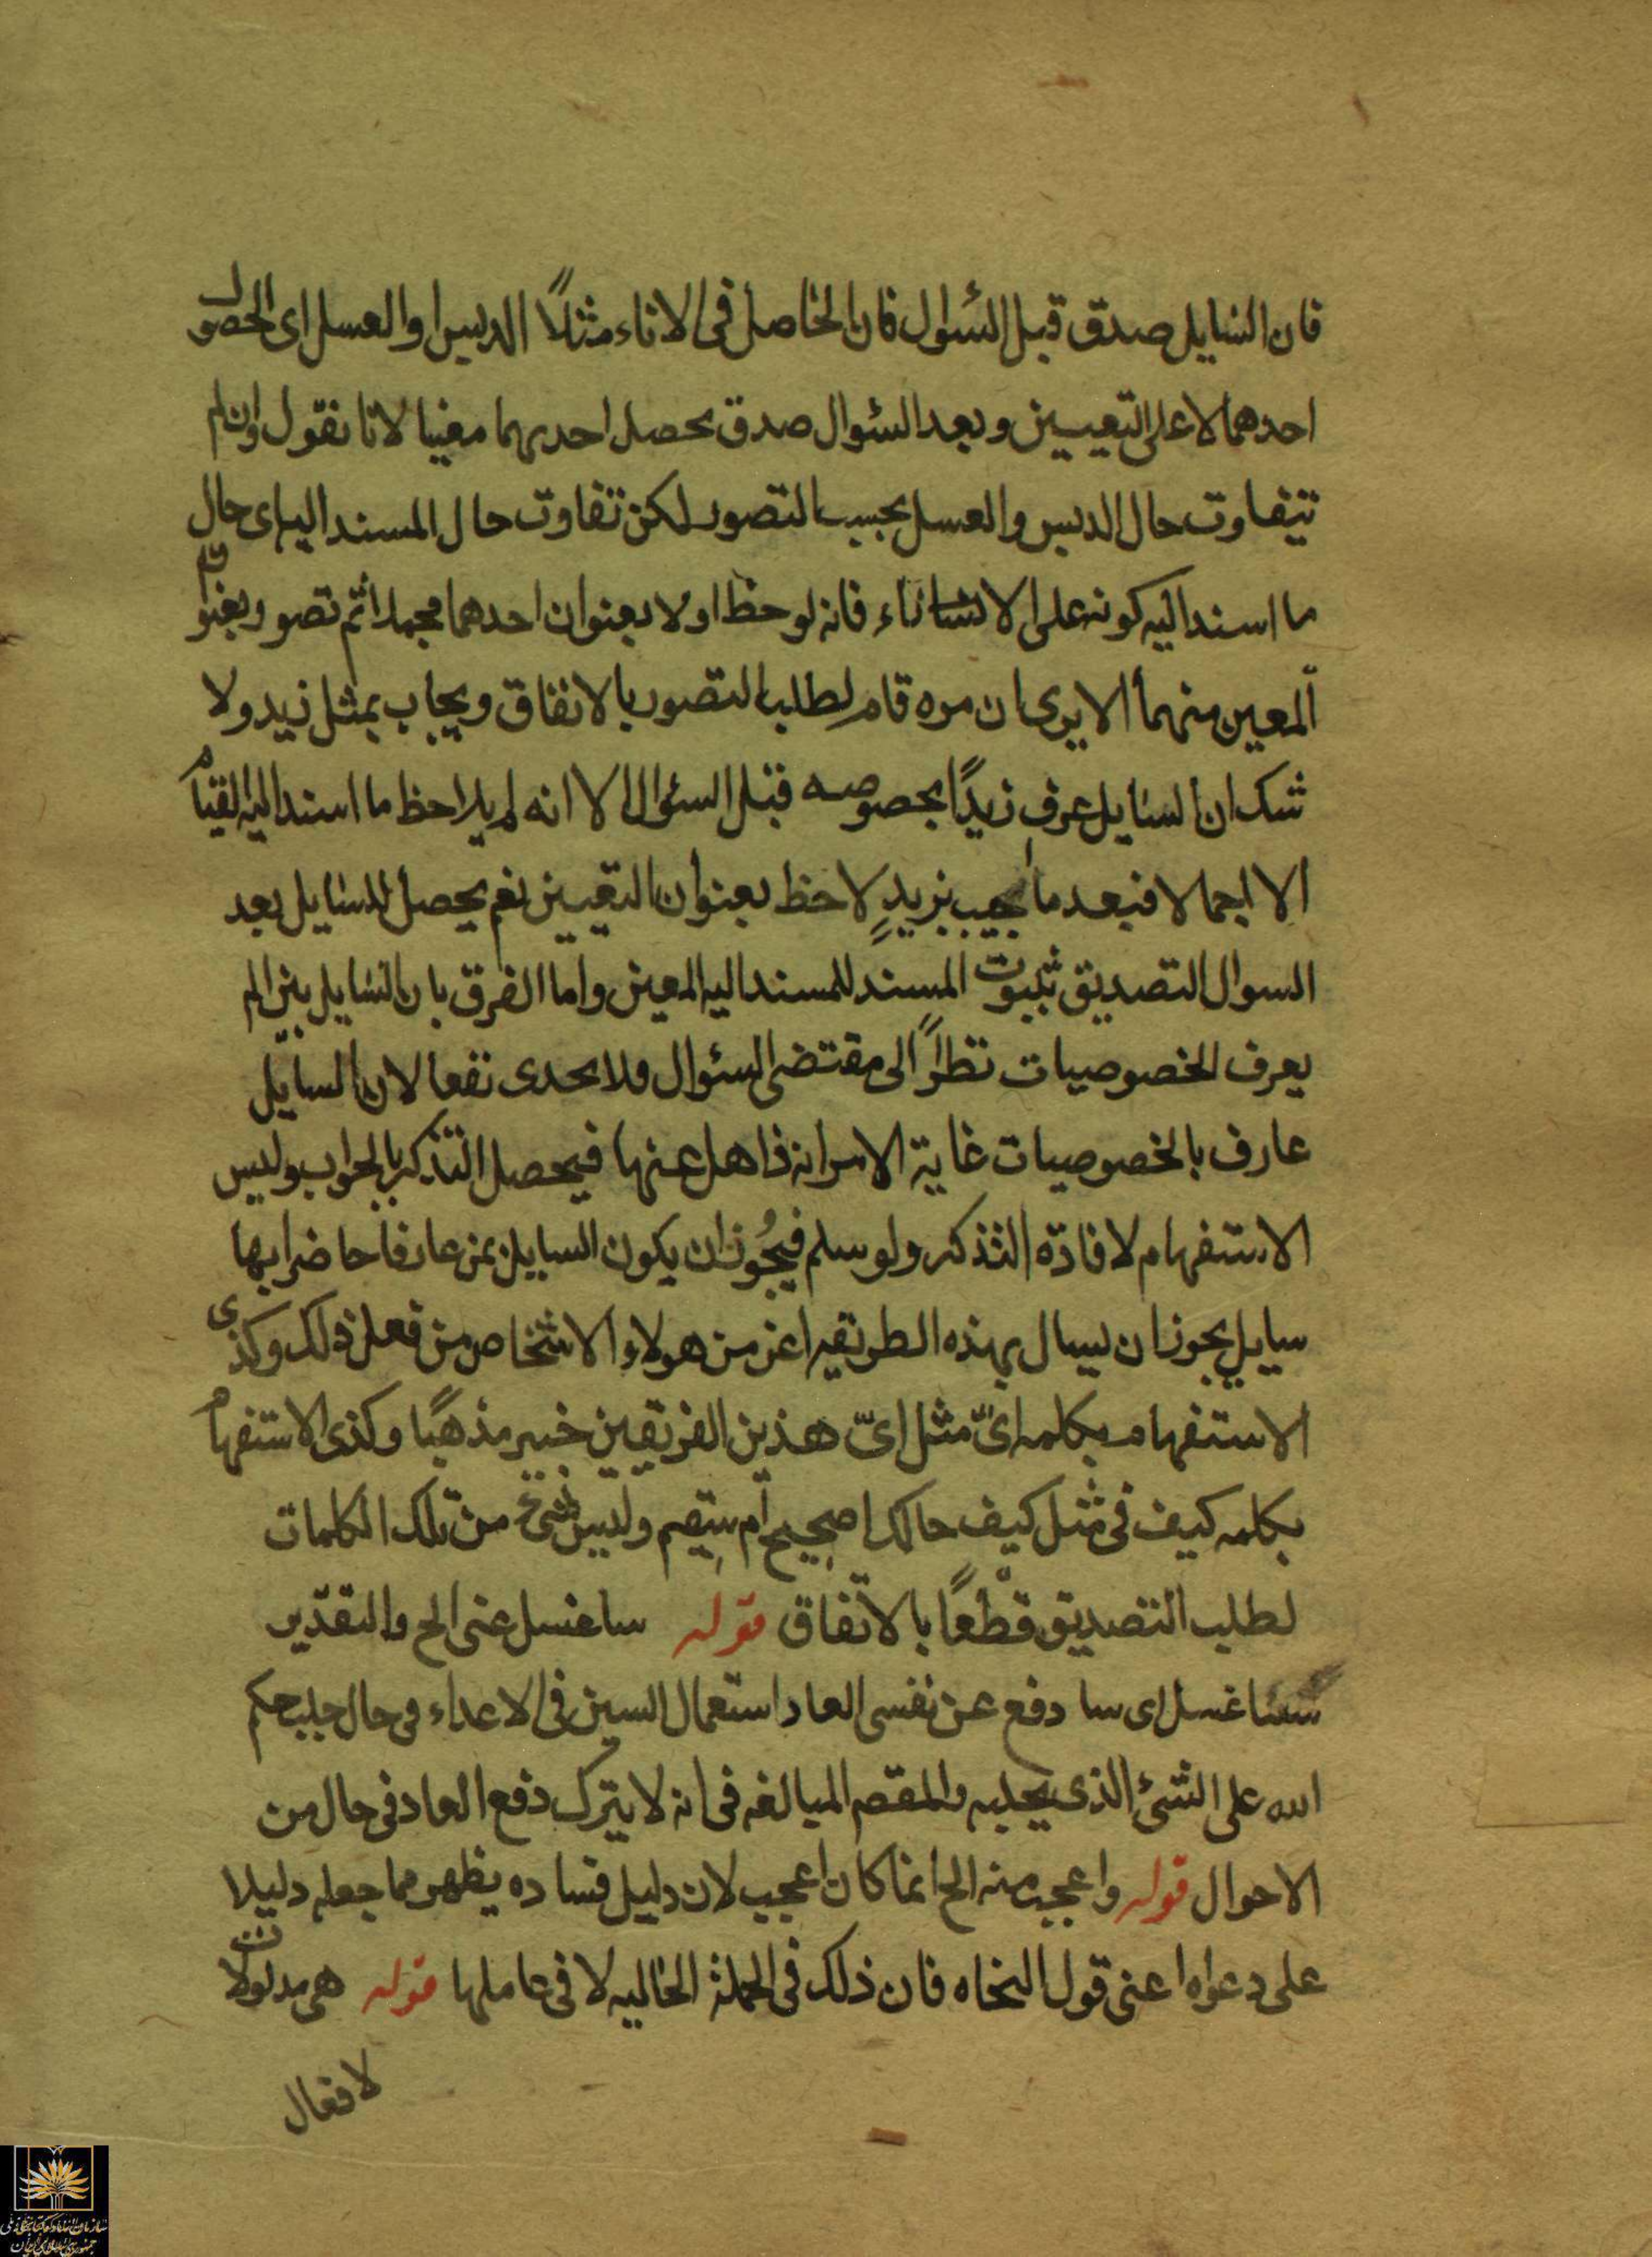 فان السايل صدق قبل السئوال فان الحاصل فى الاناء مثلاً الدبس او العسل اى الحصول
احدهما لا على التعيين و بعد السئوال صدق بحصل احديهما معنيا لانا نقول وان لم
تتفاوت حال الدبس والعسل بحسب التصور لكن تفاوت حال المسند اليه اى حال
ما اسند اليه كونه على الاناء فانه لوحظ اولا بعنوان احدهما مجملا ثم تصور بعنوان
المعين منهما الا يرى ان من قام لطلب التصور بالاتفاق ويجاب بمثل زيد ولا
شك ان السايل عرف زيدًا بخصوصه قبل السئوال الا انه لم يلاحظ ما اسند اليه القيام
الا اجمالا فبعد ما اجيب بزيدٍ لاحظ بعنوان التعيين نعم يحصل للسايل بعد
السوال التصديق بثبوت المسند للمسند اليه المعين واما الفرق بان السايل لم
يعرف الخصوصيات نظراً الى مقتضى السئوال فلا يجدى نفعا لان السايل
عارف بالخصوصيات غاية الامر انه ذاهل عنها فيحصل التذكر بالجواب وليس
الاستفهام لافادة التذكر ولو سلم فيجُوز ان يكون السايل بمن عارفا حاضرا بها
سايل يجوز ان يسال بهذه الطريقه اعنى من هولاء الاشخاص من فعل ذلك وكذى
الاستفهام بكلمه اىّ مثل اىّ هذين الفريقين خير مذهبًا وكذى الاستفهام
بكلمه كيف فى مثل كيف حالك اصحيح ام سقيم وليس شئ من تلك الكلمات
لطلب التصديق قطعًا بالاتّفاق قوله ساغسل عنى الخ والتقدير
ساغسل اى سا دفع عن نفسى العار استعمال السين فى الاعداء فى حال جلب حكم
الله على الشئ الذى يجلبه والمقصم المبالغه فى انه لا يترك دفع العار فى حال من
الاحوال قوله واعجب منه الخ انما كان اعجب لان دليل فساده يظهر مما جعله دليلا
على دعواه اعنى قول النحاه فان ذلك فى الجملة الحاليه لا فى عاملها قوله هى مدلولات
لافعال